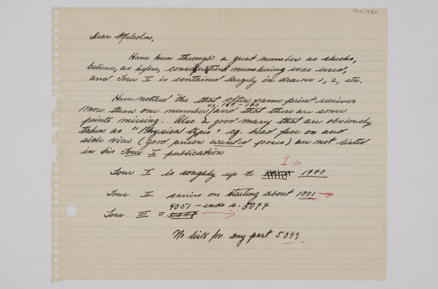 Dear Malcolm,
Have been through a great number as checks,
before, as before, consecutive numbering was used,
and Tour I is contained largely in drawer 1, 2, etc.
Have noticed tho that often same print receives
more than one number, and that there are some
prints missing. Also a good many that are obviously
taken as "Physical types" eg. head face on and
side view (good prison wanted poses) are not listed
in his Tour I publication
1
Tour I is roughly up to 1770
Tour II carries on starting about 1801
4051 - ends at 5099
Tour III =
No lists for any past 5099.